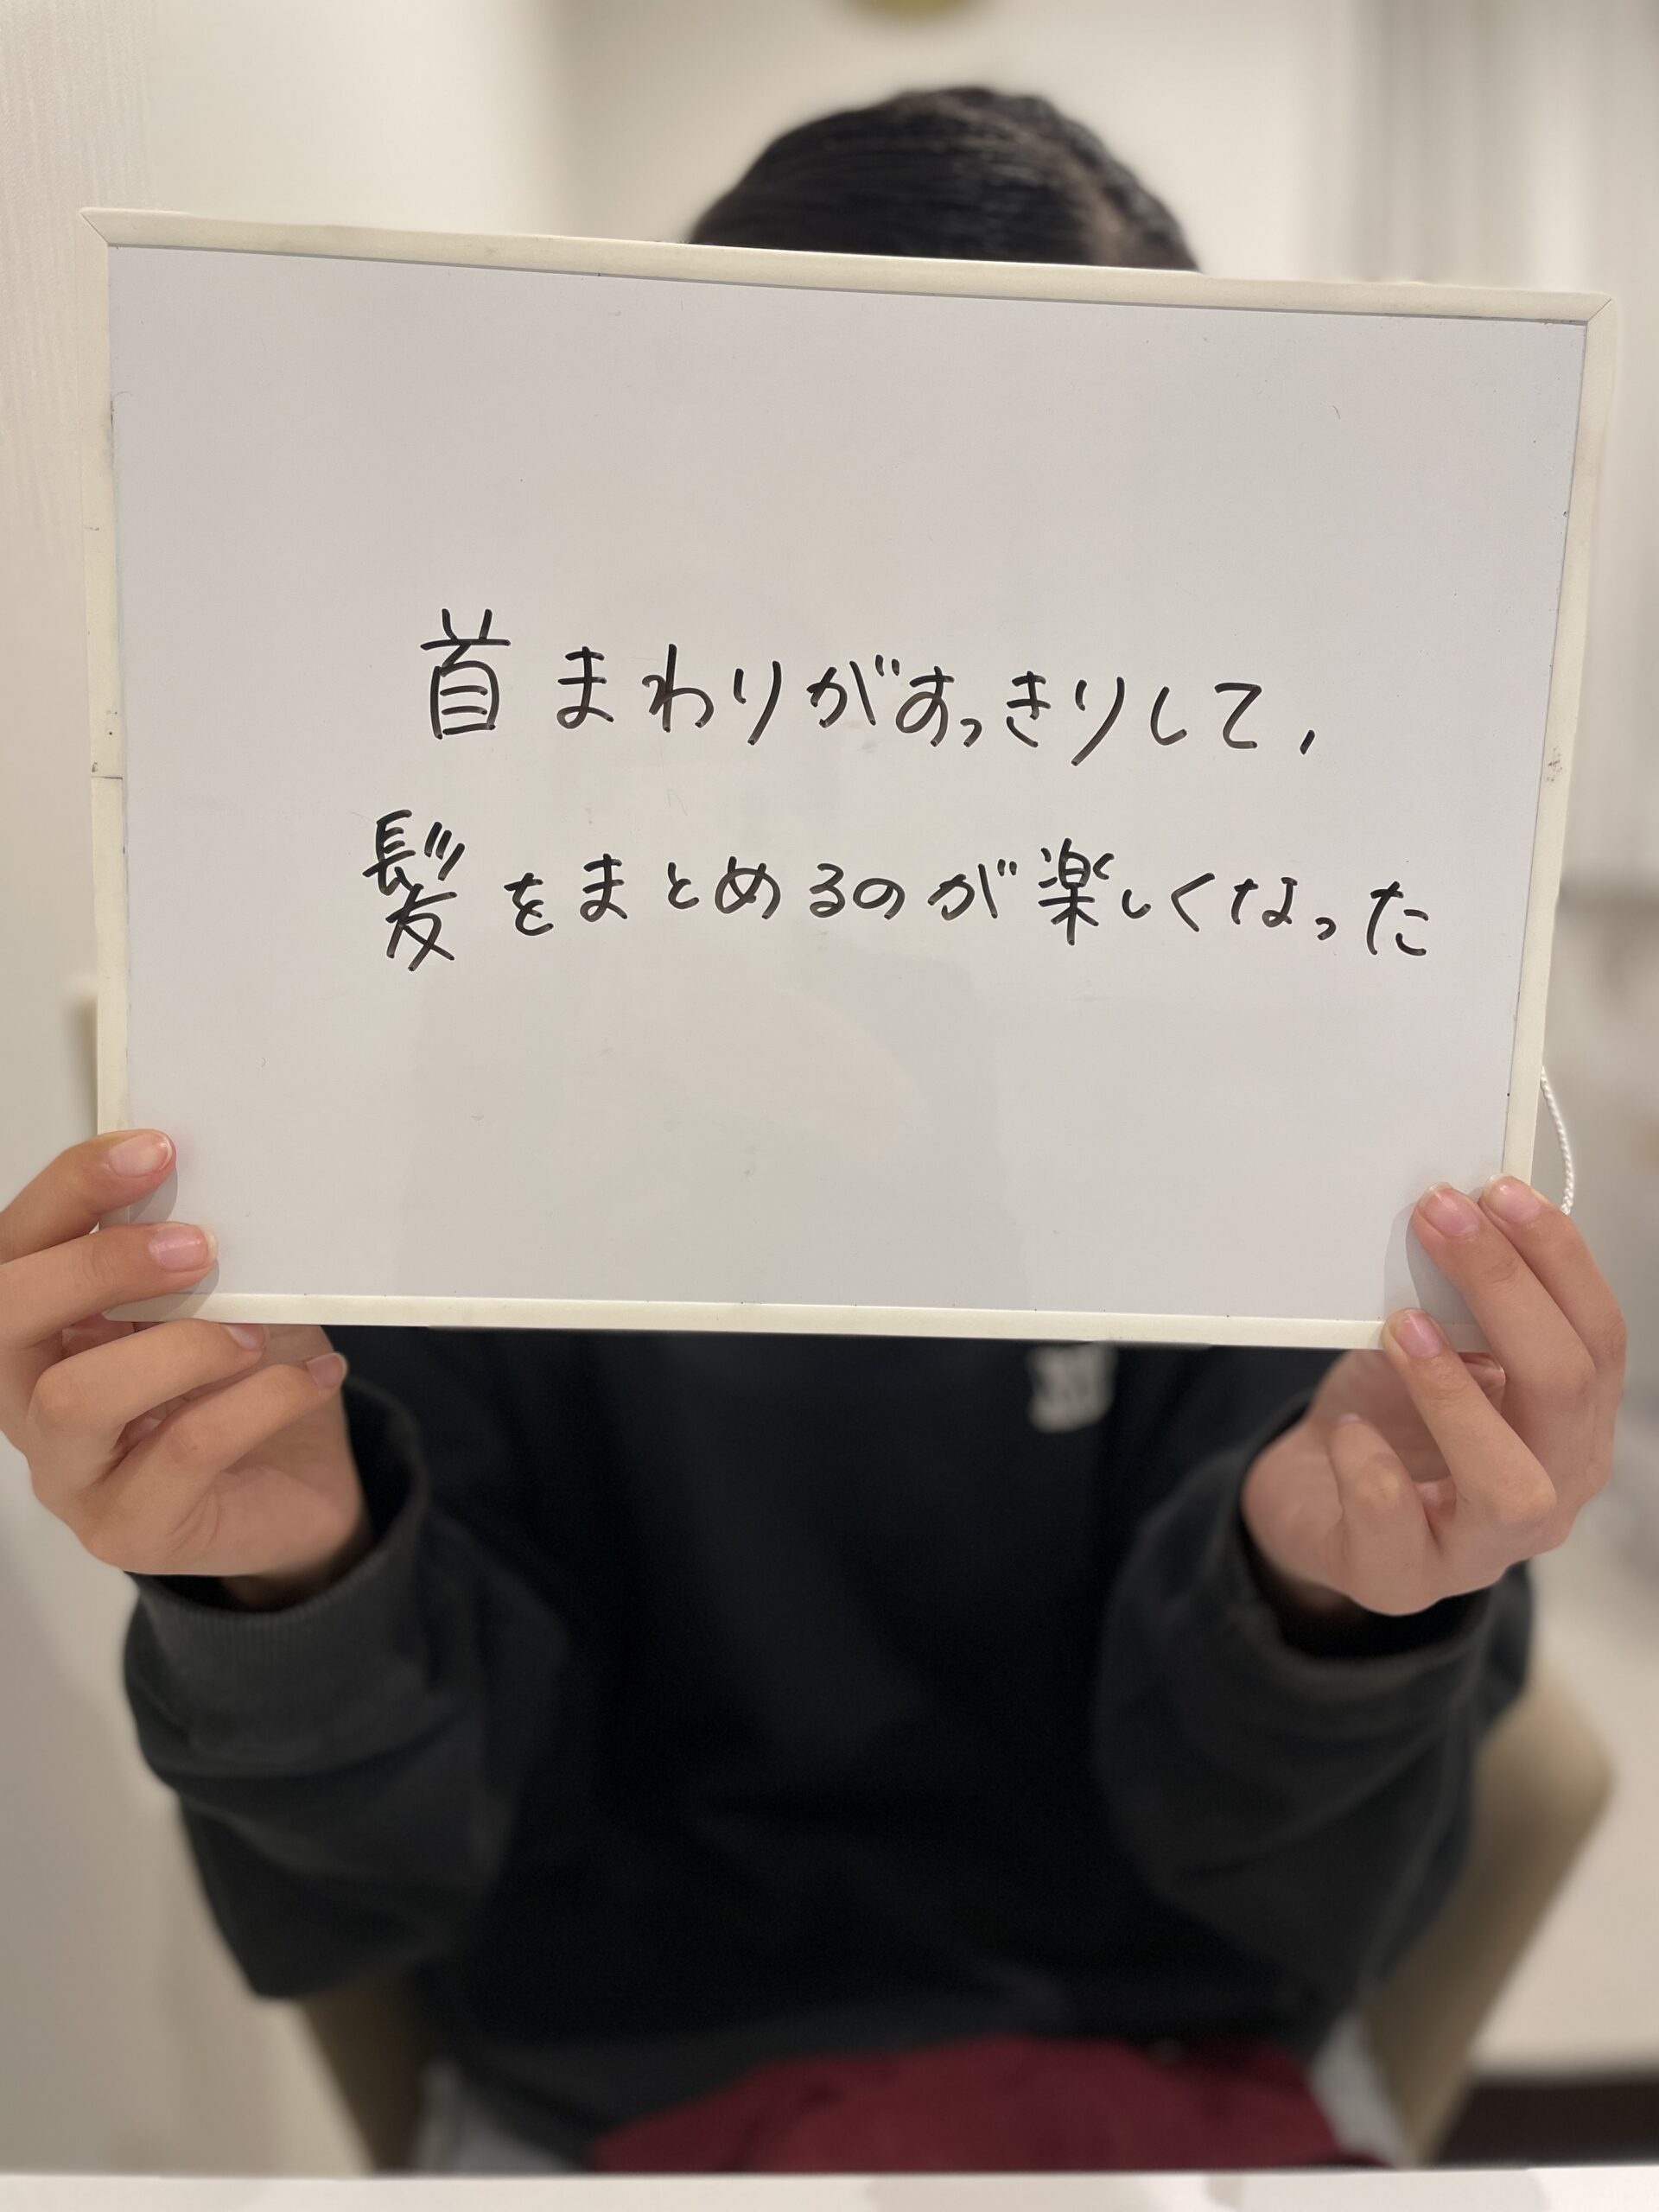 首まわりがすっきりして,
髪をまとめるのが楽しくなった